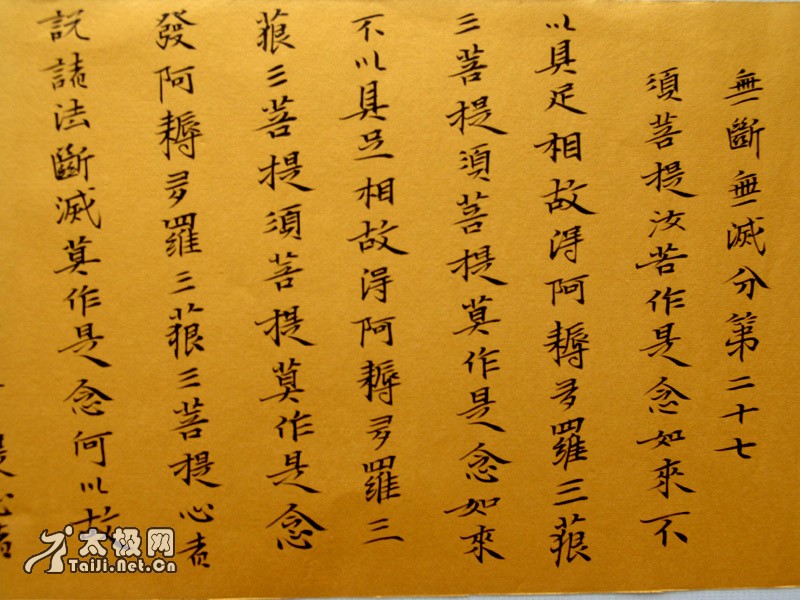 無斷無滅分第二十七
須菩提汝若作是念如來不
以具足相故得阿耨多羅三藐
三菩提須菩提莫作是念如來
不以具足相故得阿耨多羅三
藐三菩提須菩提莫作是念
發阿耨多羅三藐三菩提心者
說諸法斷滅莫作是念何以故
提心者
太极网
TaiJi.Net.Cn